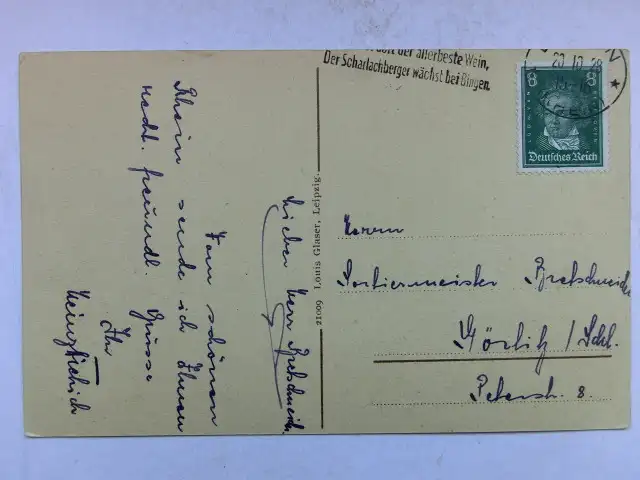 der allerbeste Wein,
Der Scharlachberger wächst bei Bingen.
20.10.28
8 8
Deutsches Reich
21009 Louis Glaser, Leipzig.
Lieber Herr Bretschneider.
Vom schönen
Rhein sende ich Ihnen
recht freundl. Grüsse
Ihr
Herrn
Bretschneider
Görlitz / Schl.
Peterstr. 8.